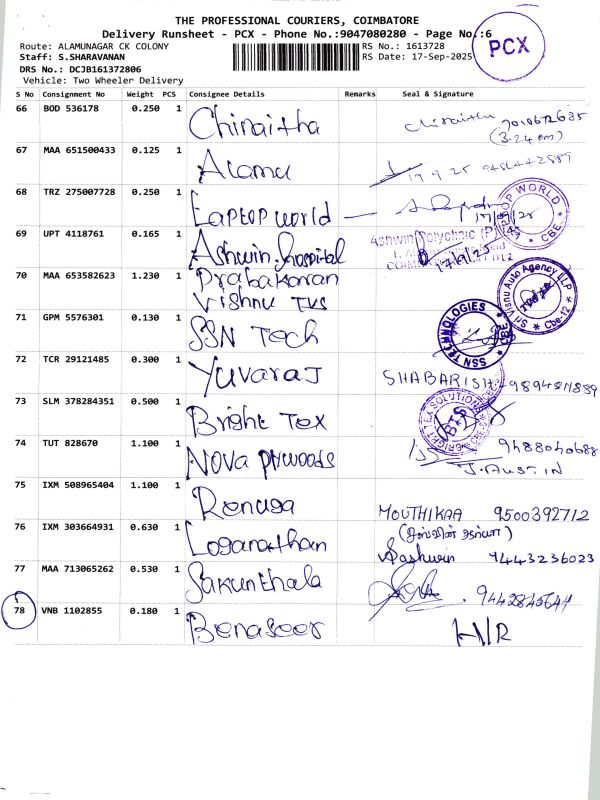 THE PROFESSIONAL COURIERS, COIMBATORE
Delivery Runsheet - PCX - Phone No.:9047080280 - Page No.:6
PCX
Route: ALAMUNAGAR CK COLONY
RS No.: 1613728
Staff: S.SHARAVANAN
RS Date: 17-Sep-2025
DRS No.: DCJB161372806
Vehicle: Two Wheeler Delivery
S No Consignment No Weight PCS Consignee Details Remarks Seal & Signature
66 BOD 536178 0.250 1 Chinaitha
(3-24 pm)
67 MAA 651500433 0.125 1 Alamu 17.9.25
68 TRZ 275007728 0.250 1 Laptop world —
LAPTOP WORLD * CBE *
69 UPT 4118761 0.165 1 Ashwin hospital
Ashwin Polyclinic (P)
17/9/25
70 MAA 653582623 1.230 1 Prabakaran
Vishnu TVS
Sri Visnu Auto Agency LLP * Cbe-12 *
71 GPM 5576301 0.130 1 SSN Tech
SSN TECHNOLOGIES * CBE *
72 TCR 29121485 0.300 1 Yuvaraj SHABARISH 9894811889
73 SLM 378284351 0.500 1 Bright Tex
BRIGHT TEX SOLUTIONS
BTS
74 TUT 828670 1.100 1 Nova plywoods 9488040688
J. AUSTIN
75 IXM 508965404 1.100 1 Renuga MOUTHIKAA 9500392712
76 IXM 303664931 0.630 1 Loganathan Aashwin 9443236023
77 MAA 713065262 0.530 1 Sakunthala 9442845644
78 VNB 1102855 0.180 1 Benaseer H/R